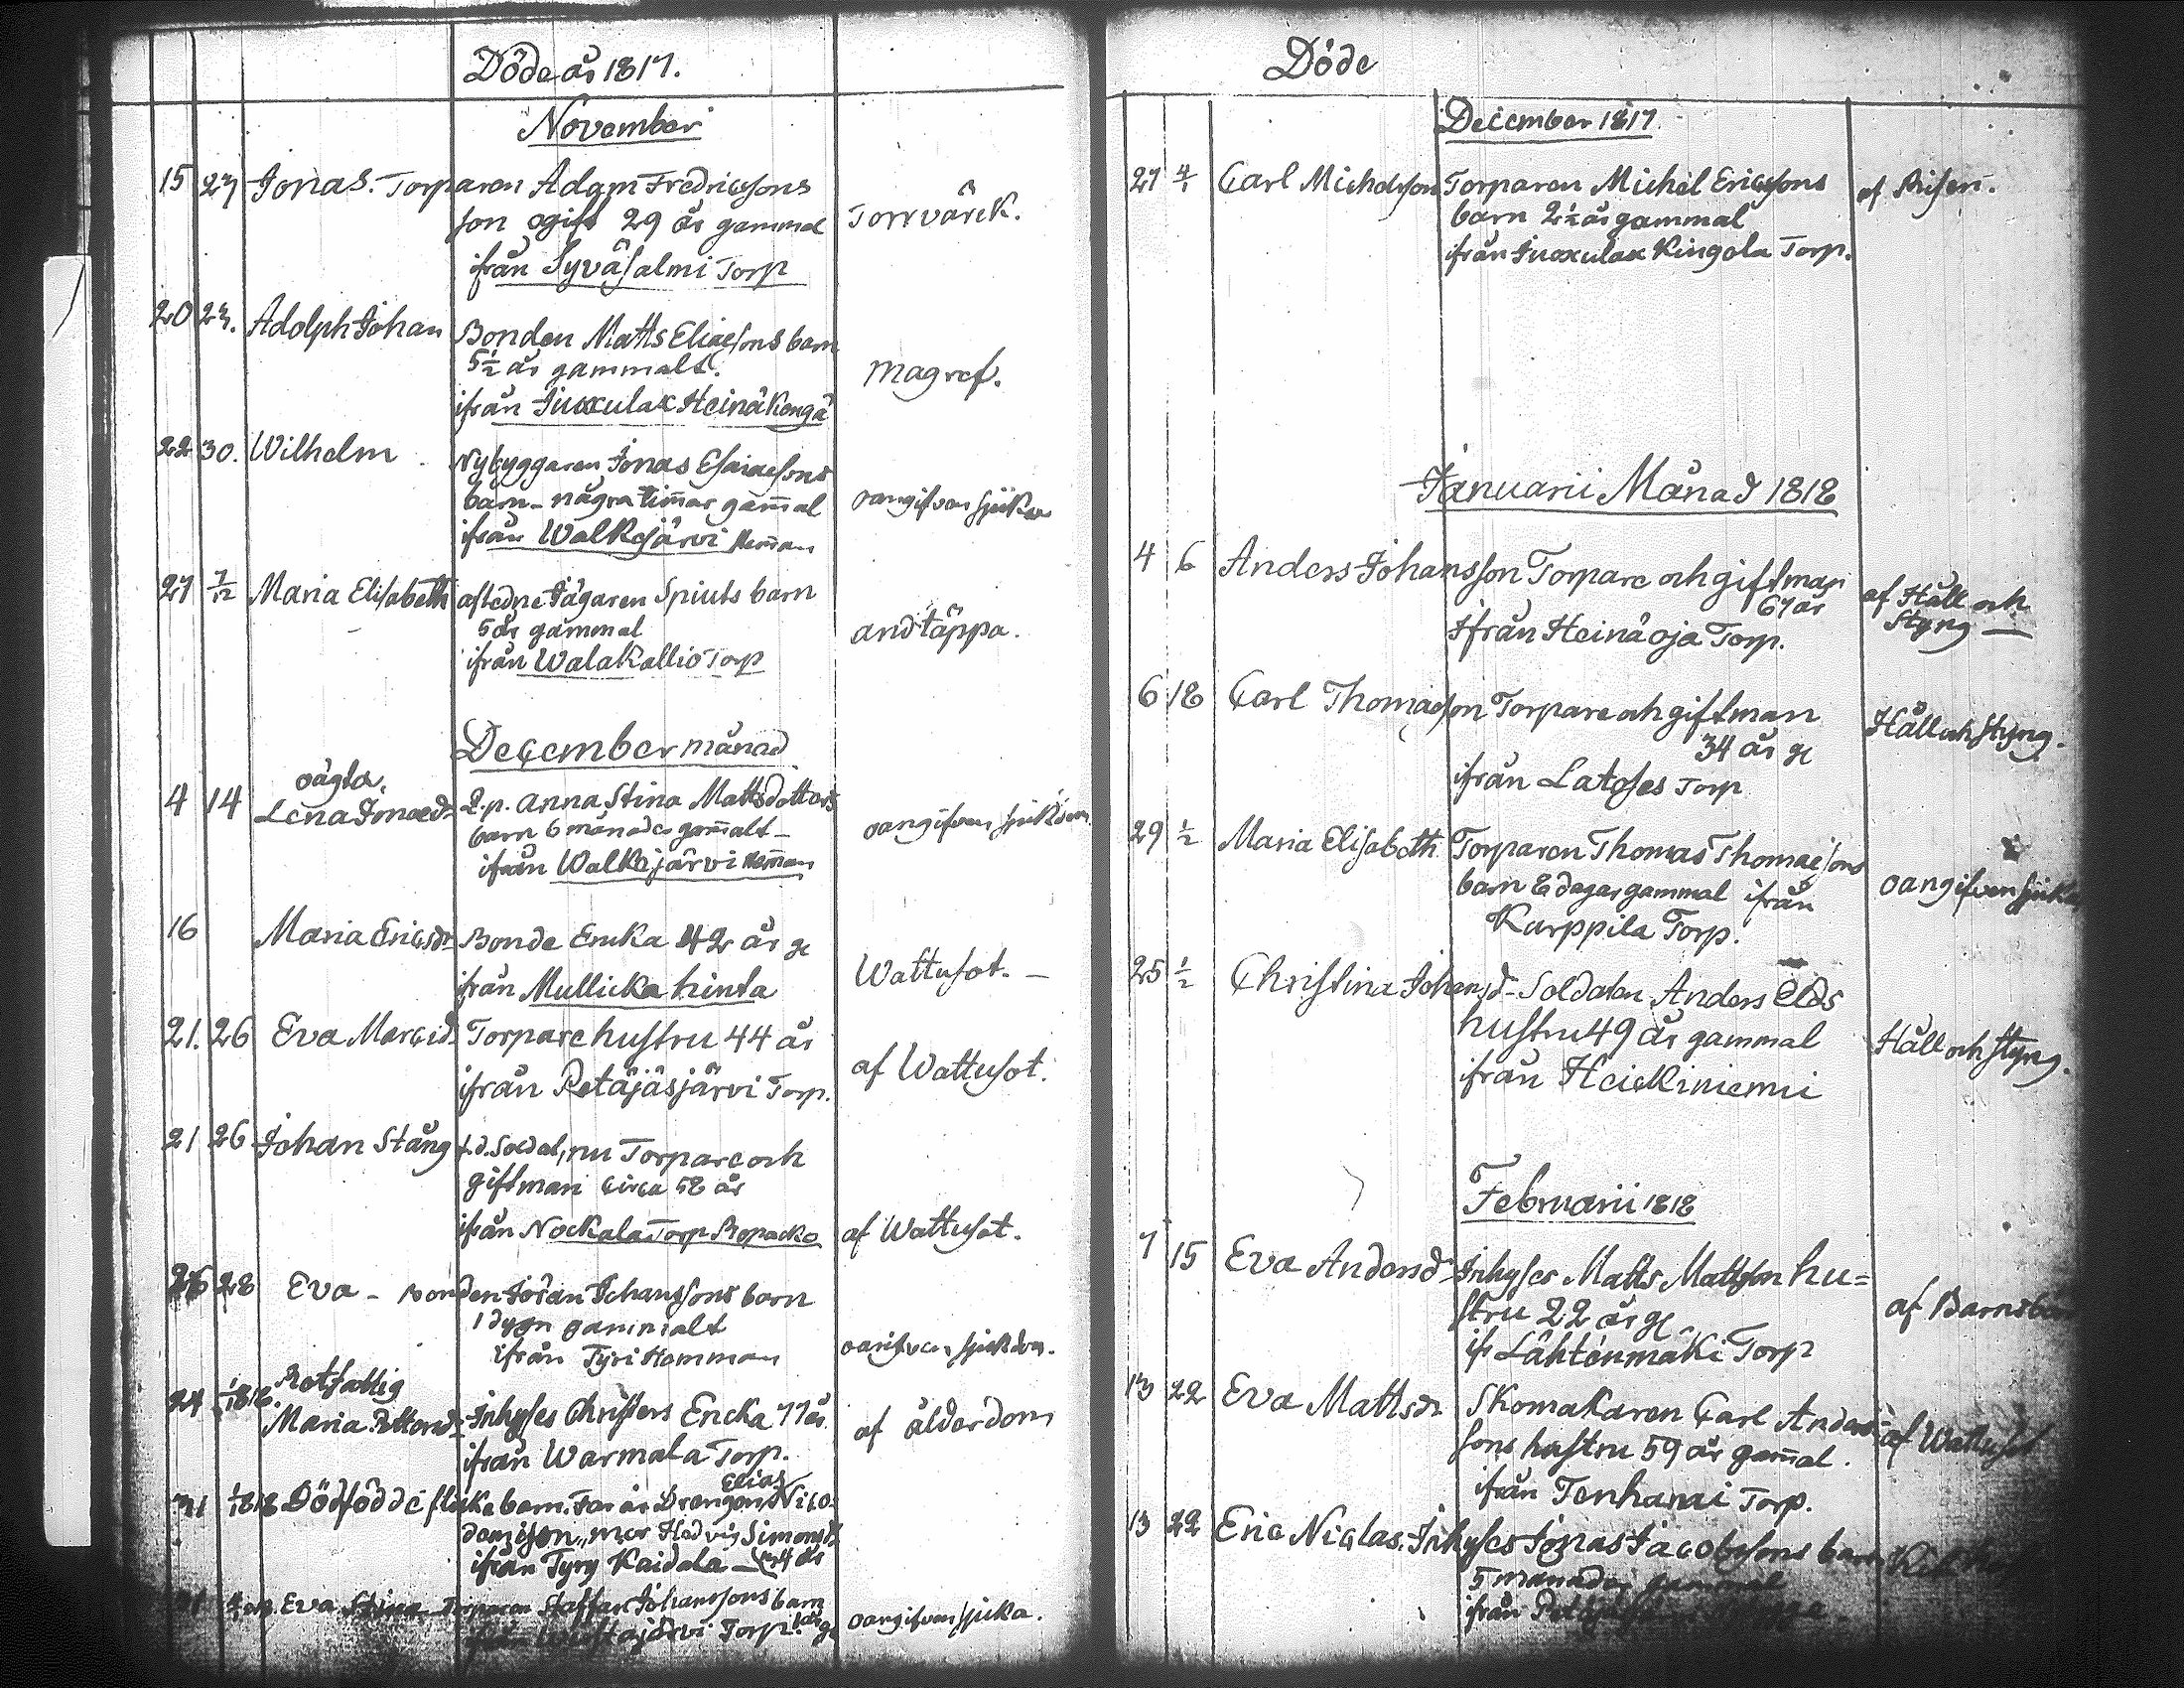 Döde år 1817.
November
15 23 Jonas. Torparen Adam Fredricssons
son ogift 29 år gammal Torrvärck.
ifrån Syväsalmi Torp
20 23. Adolph Johan Bonden Matts Eliaesons barn
5½ år gammalt. magref.
ifrån Juoxulax Heinäkengä
22 30. Wilhelm Nybyggaren Jonas Esaiaesons
barn några tim̄ar gam̄al oangifven sjuka
ifrån Walkejärvi Hem̄an
27 7/12 Maria Elisabeth afledne Jägaren Spiuts barn
5 år gammal andtäppa.
ifrån Walakallio Torp
December månad
oägta.
4 14 Lena Jonaed. Q.p. Anna Stina Mattsdotters
barn 6 månader gam̄alt oangifven sjukdom
ifrån Walkejärvi Hem̄an
16 Maria Ericsdr Bonde Encka 42 år gl
ifrån Mullickahinta Wattusot.
21. 26 Eva Marcid. Torpare hustru 44 år
ifrån Petäjäsjärvi Torp. af Wattusot.
21 26 Johan Stång f.d. Soldat, nu Torpare och
giftman circa 58 år
ifrån Nockala Torp af Wattusot.
26 28 Eva Bonden Jöran Johanssons barn
1 dygn gammalt
ifrån Tyri Hemman sjukdom.
Rotfattig
24 1/1818. Maria Inhyses Christers Encka 77 år
ifrån Warmala Torp. af ålderdom
31 1/1818 Dödfödde flicke barn. Far är Drengen Elias Nico-
demison, mor Hedvig Simonsd.
ifrån Tyry Kaidala 34 år
31 Eva Stina Torparen Staffan Johanssons barn
Torp. oangifven sjuka.
Döde
December 1817
27 4/1 Carl Michelsson Torparen Michel Ericssons af Risen.
barn 2½ år gammal
ifrån Juoxulax Kingola Torp.
Januarii Månad 1818
4 6 Anders Johansson Torpare och giftman
67 år af Håll och
ifrån Heinäoja Torp. Styng
6 18 Carl Thomasson Torpare och giftman
34 år gl Håll och styng.
ifrån Latoses Torp
29 1/2 Maria Elisabeth Torparen Thomas Thomaesons
barn 8 dagar gammal ifrån oangifven sjuka
Karppila Torp.
25 1/2 Christina Johansd. Soldaten Anders Elds
hustru 49 år gammal Håll och styng.
ifrån Heickiniemi
Februarii 1818
7 15 Eva Andersd. Inhyses Matts Mattsson hu=
stru 22 år gl af
ifr Lähtenmäki Torp
13 22 Eva Mattsdr Skomakaren Carl Anders=
sons hustru 59 år gam̄al. af Wattusot
ifrån Tenhami Torp.
13 22 Eric Niclas. Inhyses Jonas Jacobssons barn Kik
5 månader gammal
ifrån